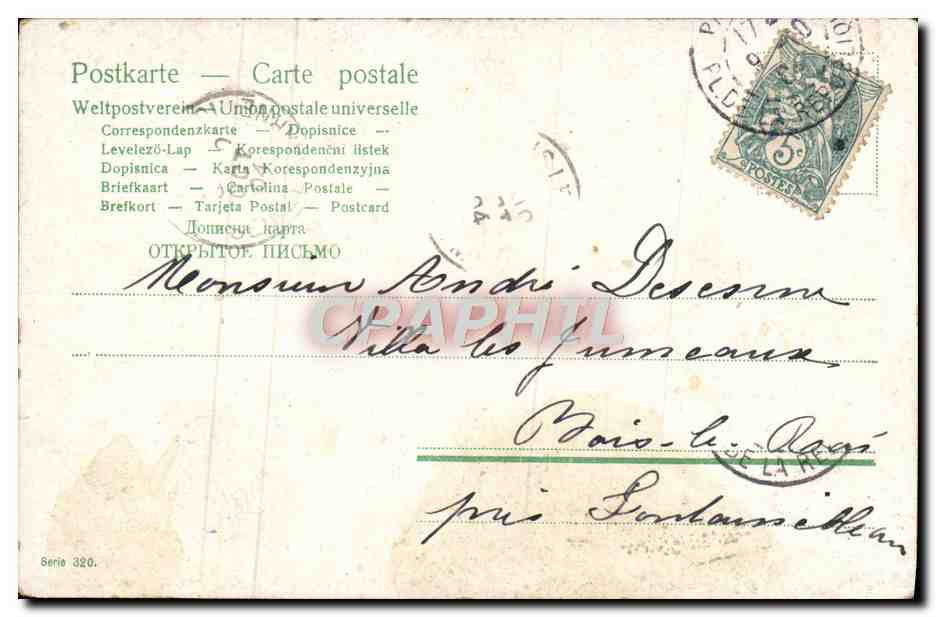 Postkarte — Carte postale
Weltpostverein — Union postale universelle
Correspondenzkarte — Dopisnice —
Levelező-Lap — Korespondenční listek
Dopisnica — Karta Korespondenzyjna
Briefkaart — Cartolina Postale —
Brefkort — Tarjeta Postal — Postcard
Дописна карта
ОТКРЫТОЕ ПИСЬМО
5c
POSTES
Monsieur André Desesnne
CPAPHIL
Villa les Jumeaux
Bois-le-Roi
DE LA RE
près Fontainebleau
Serie 320.